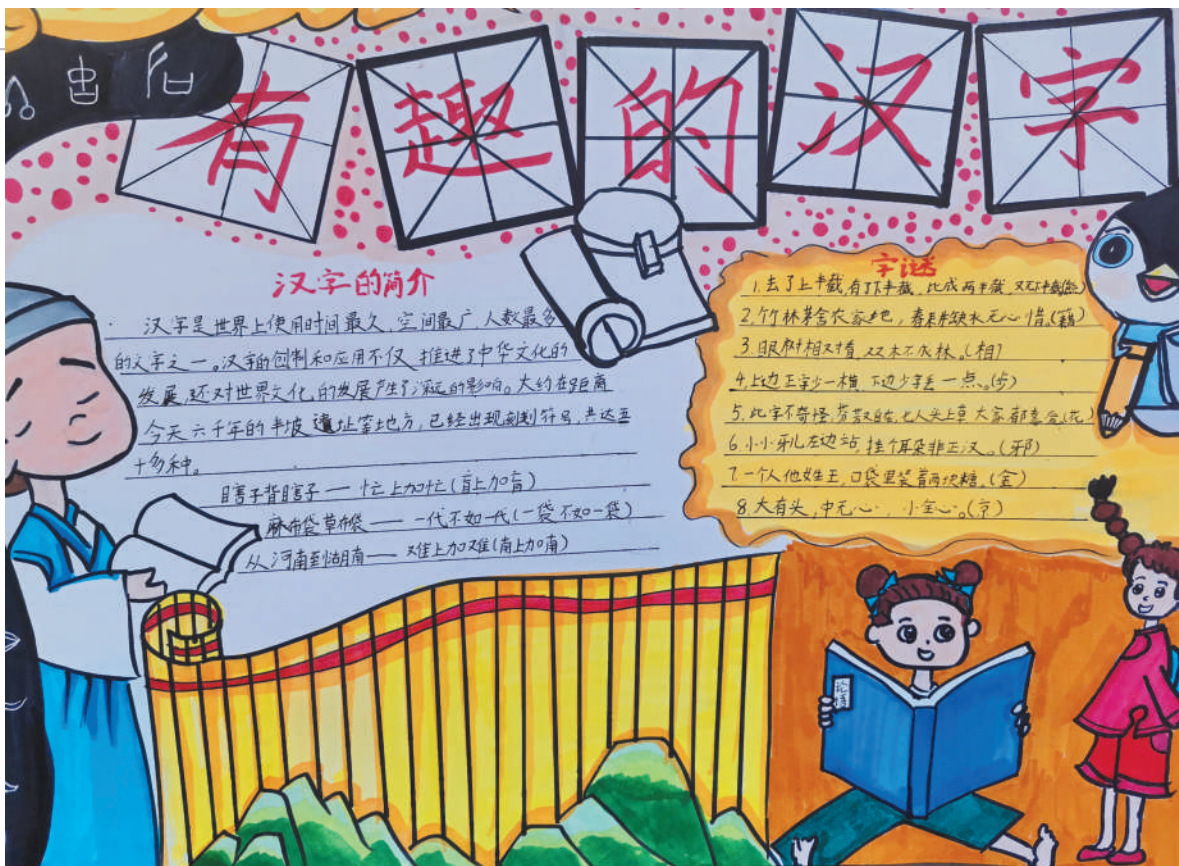 有趣的汉字
汉字的简介
汉字是世界上使用时间最久、空间最广、人数最多
的文字之一。汉字的创制和应用不仅推进了中华文化的
发展,还对世界文化的发展产生了深远的影响。大约在距离
今天六千年的半坡遗址等地方,已经出现刻划符号,共达五
十多种。
瞎子背瞎子——忙上加忙(盲上加盲)
麻布袋草布袋——一代不如一代(一袋不如一袋)
从河南到湖南——难上加难(南上加南)
字谜
1.去了上半截,有了下半截,比成两半截,又不半截
2.竹林茅舍农家地,春耕缺水无心惜。(籍)
3.眼树相对情,双木不成林。(相)
4.上边正字少一横,下边少字丢一点。(步)
5.此字不奇怪,芬芳自在,七人头上草大家都喜爱(花)
6.小小牙儿左边站,挂个耳朵非正汉。(邪)
7.一个人他姓王,口袋里装着两块糖。(金)
8.大有头,中无心,小全心。(京)
论语